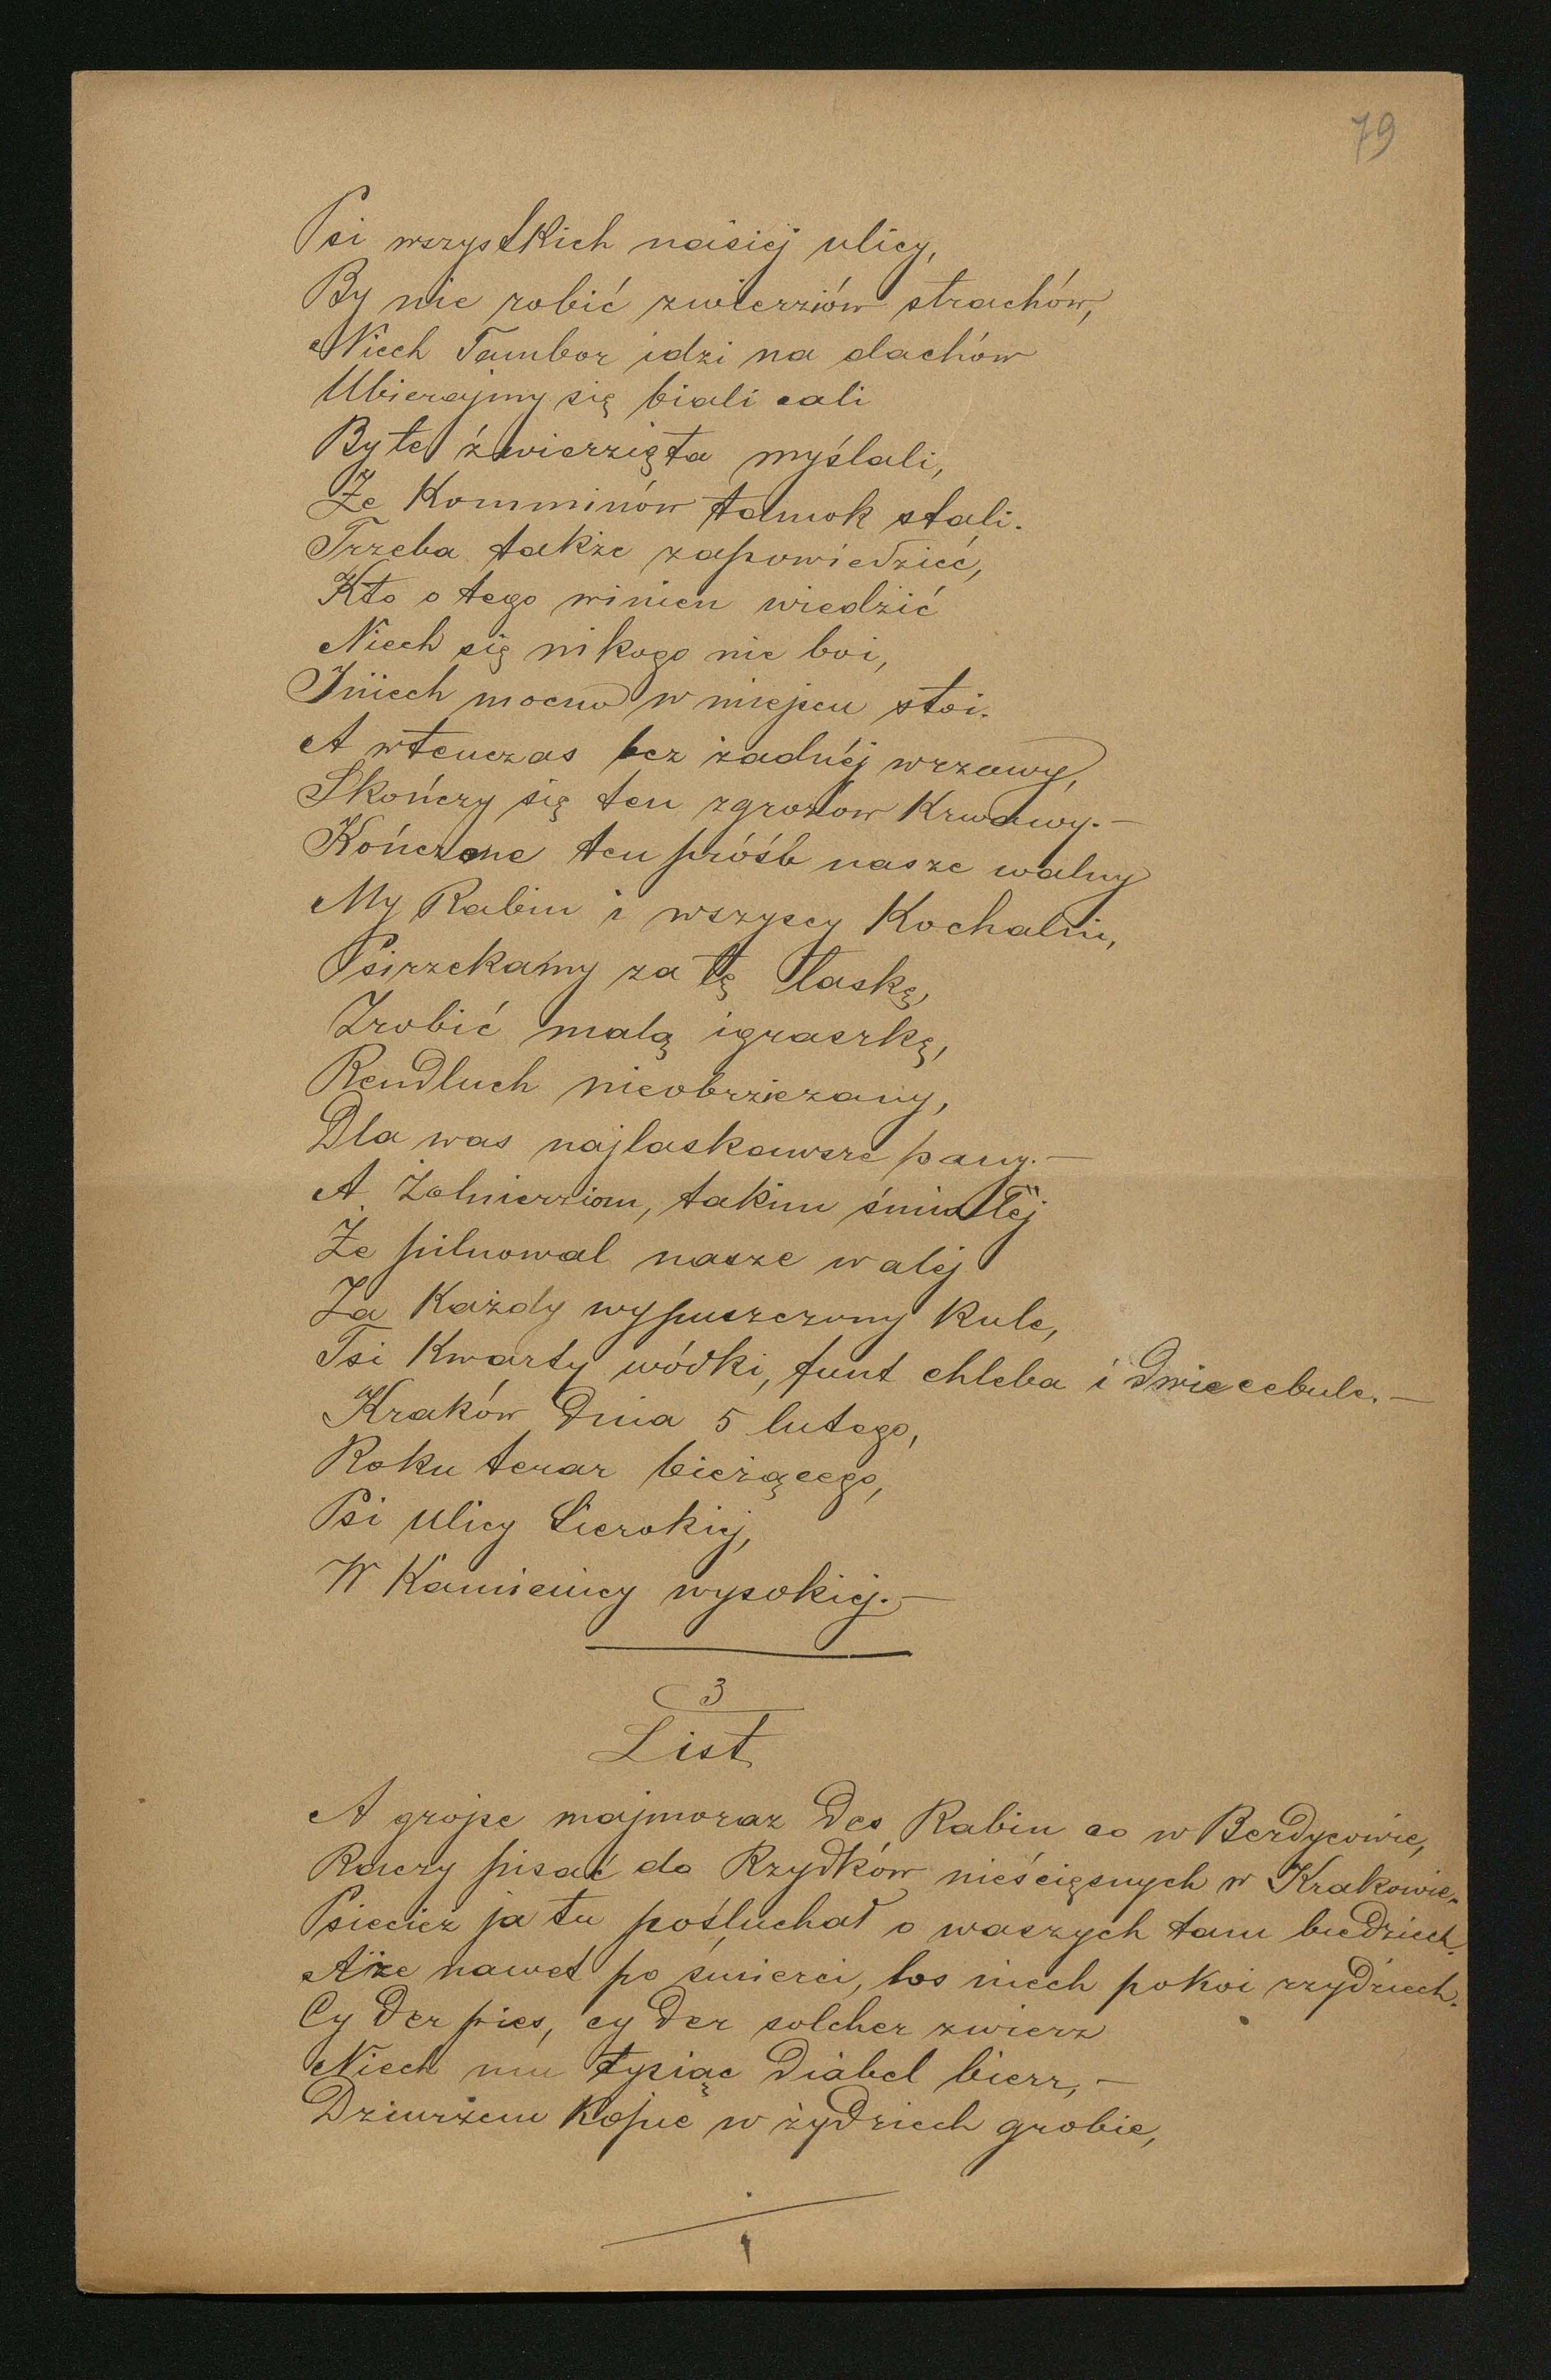 79
Psi wszystkich naisiej ulicy,
By nie robić zwierziów strachów,
Niech Tambor idzi na dachów
Ubierajmy się biali cali
By te źwierzięta myślali,
Że Komminów tamok stali.
Trzeba także zapowiedzieć,
Kto o tego winien wiedzić
Niech się nikogo nie boi,
I niech mocno w miejscu stoi.
A wtenczas bez żadnéj wrzawy,
Skończy się ten zgrozow Krwawy.—
Kończone ten próśb nasze walny
My Rabin i wszyscy Kochalni,
Psirzekamy za tę łaskę,
Zrobić małą igraszkę,
Rendluch nieobrziezany,
Dla was najlaskawsze pany.—
A Żolnierziom, takim śmiałéj
Że pilnował nasze waléj
Za Każdy wypuszczony kule,
Tsi Kwarty wódki, funt chleba i dwie cebule.—
Kraków Dnia 5 lutego,
Roku teraz bieżącego,
Psi ulicy Sierokiej,
W Kamienicy wysokiej.—
3
List
A grojse majmoraz des Rabin co w Berdycowie,
Raczy pisać do Rzydków nieścięsnych w Krakowie.
Psiecież ja tu pośłuchał o waszych tam biedziech.
Aże nawet po śmierci, los niech pokoi rzydziech.
Cy der pies, cy der solcher zwierz
Niech mu tysiąc diabel bierz,—
Dziurżem Kopie w żydziech grobie,